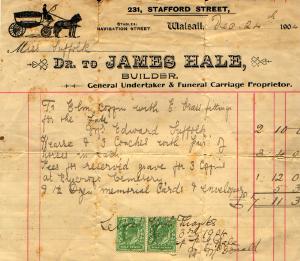 231, STAFFORD STREET,
STABLES:
NAVIGATION STREET
Walsall, Dec 24th 190
Miss Suffolk
DR. TO JAMES HALE,
BUILDER,
General Undertaker & Funeral Carriage Proprietor.
To Elm Coffin with E Brass fittings
for the late
Edward Suffolk 2 10
Hearse & 3 Coaches with pair of
horses in each 3
Fees for reserved grave for 3 Coffins
at Cemetery 1 12 0
Memorial Cards & Envelopes
7 11 3
Thanks